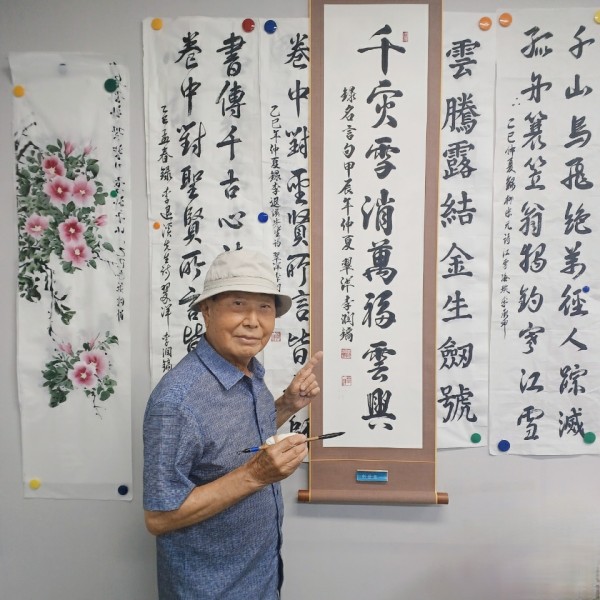 千山鳥飛絕萬徑人踪滅
孤舟簑笠翁獨釣寒江雪
乙巳仲夏錄柳宗元詩江雪
雲騰露結金生劒號
千灾雪消萬福雲興
錄名言句甲辰年仲夏 翠溪李潤鎬
卷中對聖賢所言皆
乙巳年仲夏錄李退溪先生詩
書傳千古心
卷中對聖賢所言皆
乙巳孟春錄李退溪先生詩